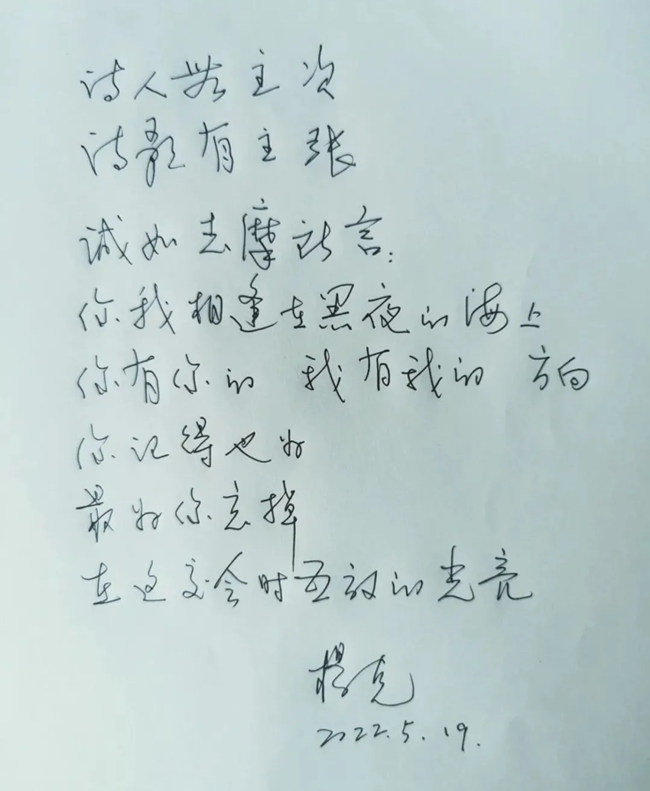 诗人无主次
诗歌有主张
诚如志摩所言:
你我相逢在黑夜的海上
你有你的 我有我的 方向
你记得也好
最好你忘掉
在这交会时互放的光亮
杨克
2022.5.19.